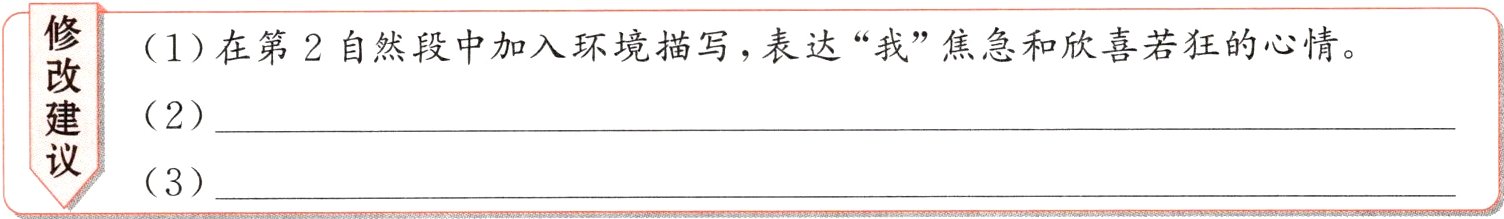 修改建议
(1)在第2自然段中加入环境描写，表达“我”焦急和欣喜若狂的心情。
(2)
(3)